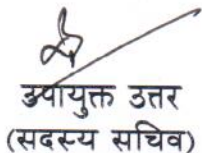 उपायुक्त उत्तर
(सदस्य सचिव)